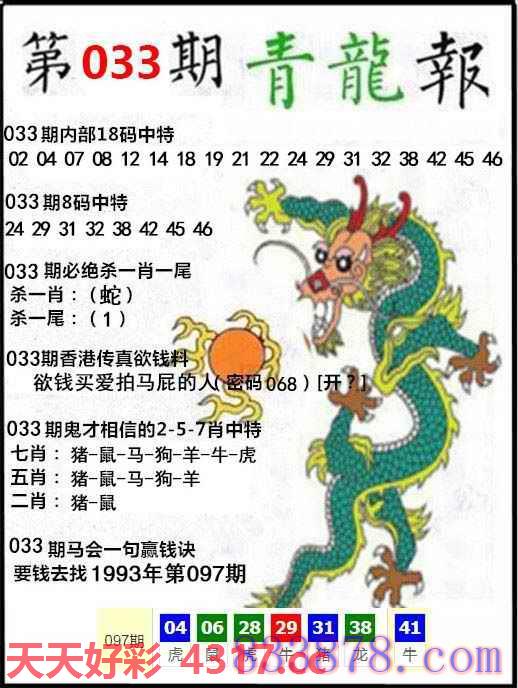 第033期青龍報
033期内部18码中特
02 04 07 08 12 14 18 19 21 22 24 29 31 32 38 42 45 46
033期8码中特
24 29 31 32 38 42 45 46
033期必绝杀一肖一尾
杀一肖：（蛇）
杀一尾：（1）
033期香港传真欲钱料
欲钱买爱拍马屁的人（密码068）[开？]
033期鬼才相信的2-5-7肖中特
七肖：猪-鼠-马-狗-羊-牛-虎
五肖：猪-鼠-马-狗-羊
二肖：猪-鼠
033期马会一句赢钱诀
要钱去找1993年第097期
097期 04 06 28 29 31 38 41
虎 鼠 虎 牛 猪 龙 牛
天天好彩 4317.cc